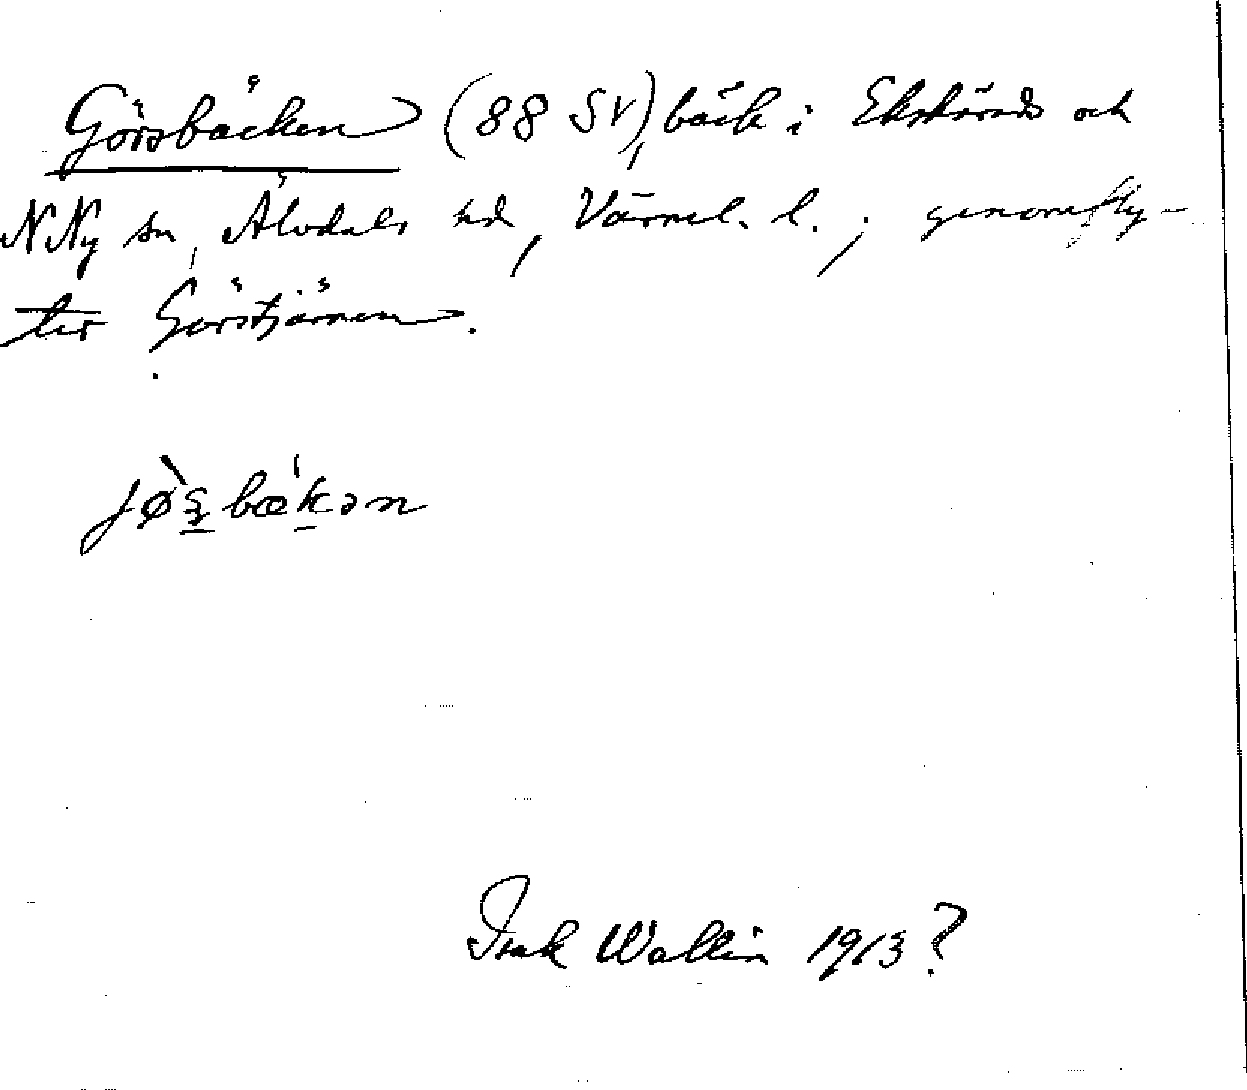 Görsbäcken (88 SV), bäck i Ekshärads och
N Ny sn, Älvdals hd, Värml. l.; genomfly-
ter Görstjärnen.
jø̀ʂbæ̍kən
Isak Wallin 1913?